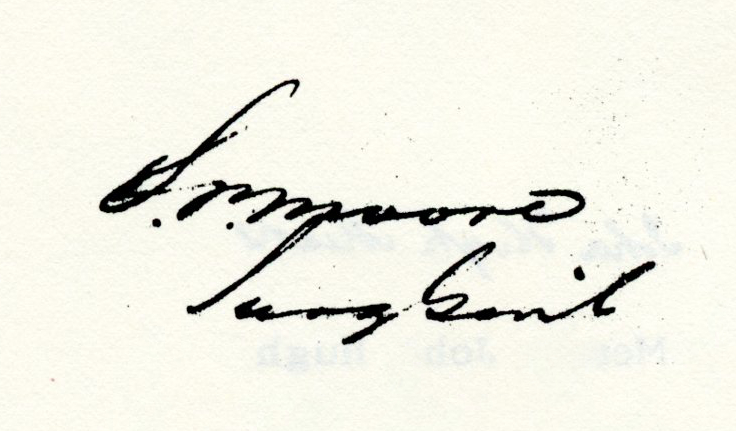 S. P. Moore
Surg Genl